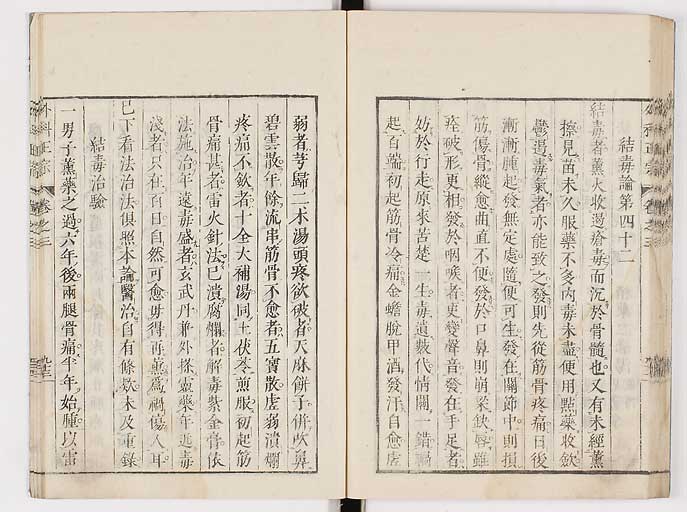 結毒論第四十二
結毒者薰火收遏瘡毒而沉於骨髓也又有未經薰
擦見苗未久服藥不多內毒未盡便用點藥收斂
鬱遏毒氣者亦能致之發則先從筋骨疼痛日後
漸漸腫起發無定處隨便可生發在關節中則損
筋傷骨縱愈曲直不便發於口鼻則崩梁缺唇雖
痊破形更相發於咽喉者更變聲音發在手足者
妨於行走原來苦楚一生毒遺數代情關一錯禍
起百端初起筋骨冷痛金蟾脫甲酒發汗自愈虛
弱者芎歸二朮湯頭疼欲破者天麻餅子併吹鼻
碧雲散年餘流串筋骨不愈者五寶散虛弱潰爛
疼痛不斂者十全大補湯同土茯苓煎服初起筋
骨痛甚者雷火針法已潰腐爛者解毒紫金膏依
法施治年遠毒盛者玄武丹兼外搽靈藥年近毒
淺者只在百日自然可愈毋得再薰為禍傷人耳
已下看法治法俱照本論醫治自有條欵未及重錄
結毒治驗
一男子薰藥之過六年後兩腿骨痛半年始腫以雷
外科正宗
卷之三